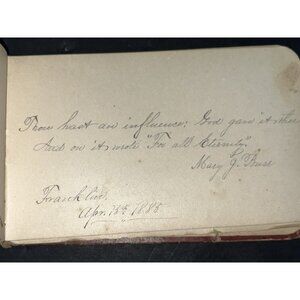 Thou hast an influence; God gave it thee
And on it wrote "For all Eternity."
Mary J.
Franklin,
Apr. 1885